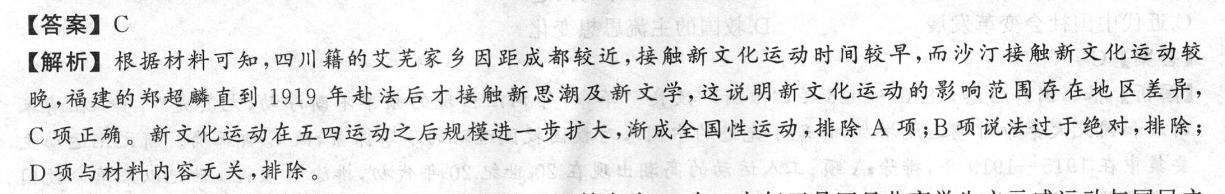 【答案】C
【解析】根据材料可知,四川籍的艾芜家乡因距成都较近,接触新文化运动时间较早,而沙汀接触新文化运动较
晚,福建的郑超麟直到 1919 年赴法后才接触新思潮及新文学,这说明新文化运动的影响范围存在地区差异,
C 项正确。新文化运动在五四运动之后规模进一步扩大,渐成全国性运动,排除 A 项;B 项说法过于绝对,排除;
D 项与材料内容无关,排除。